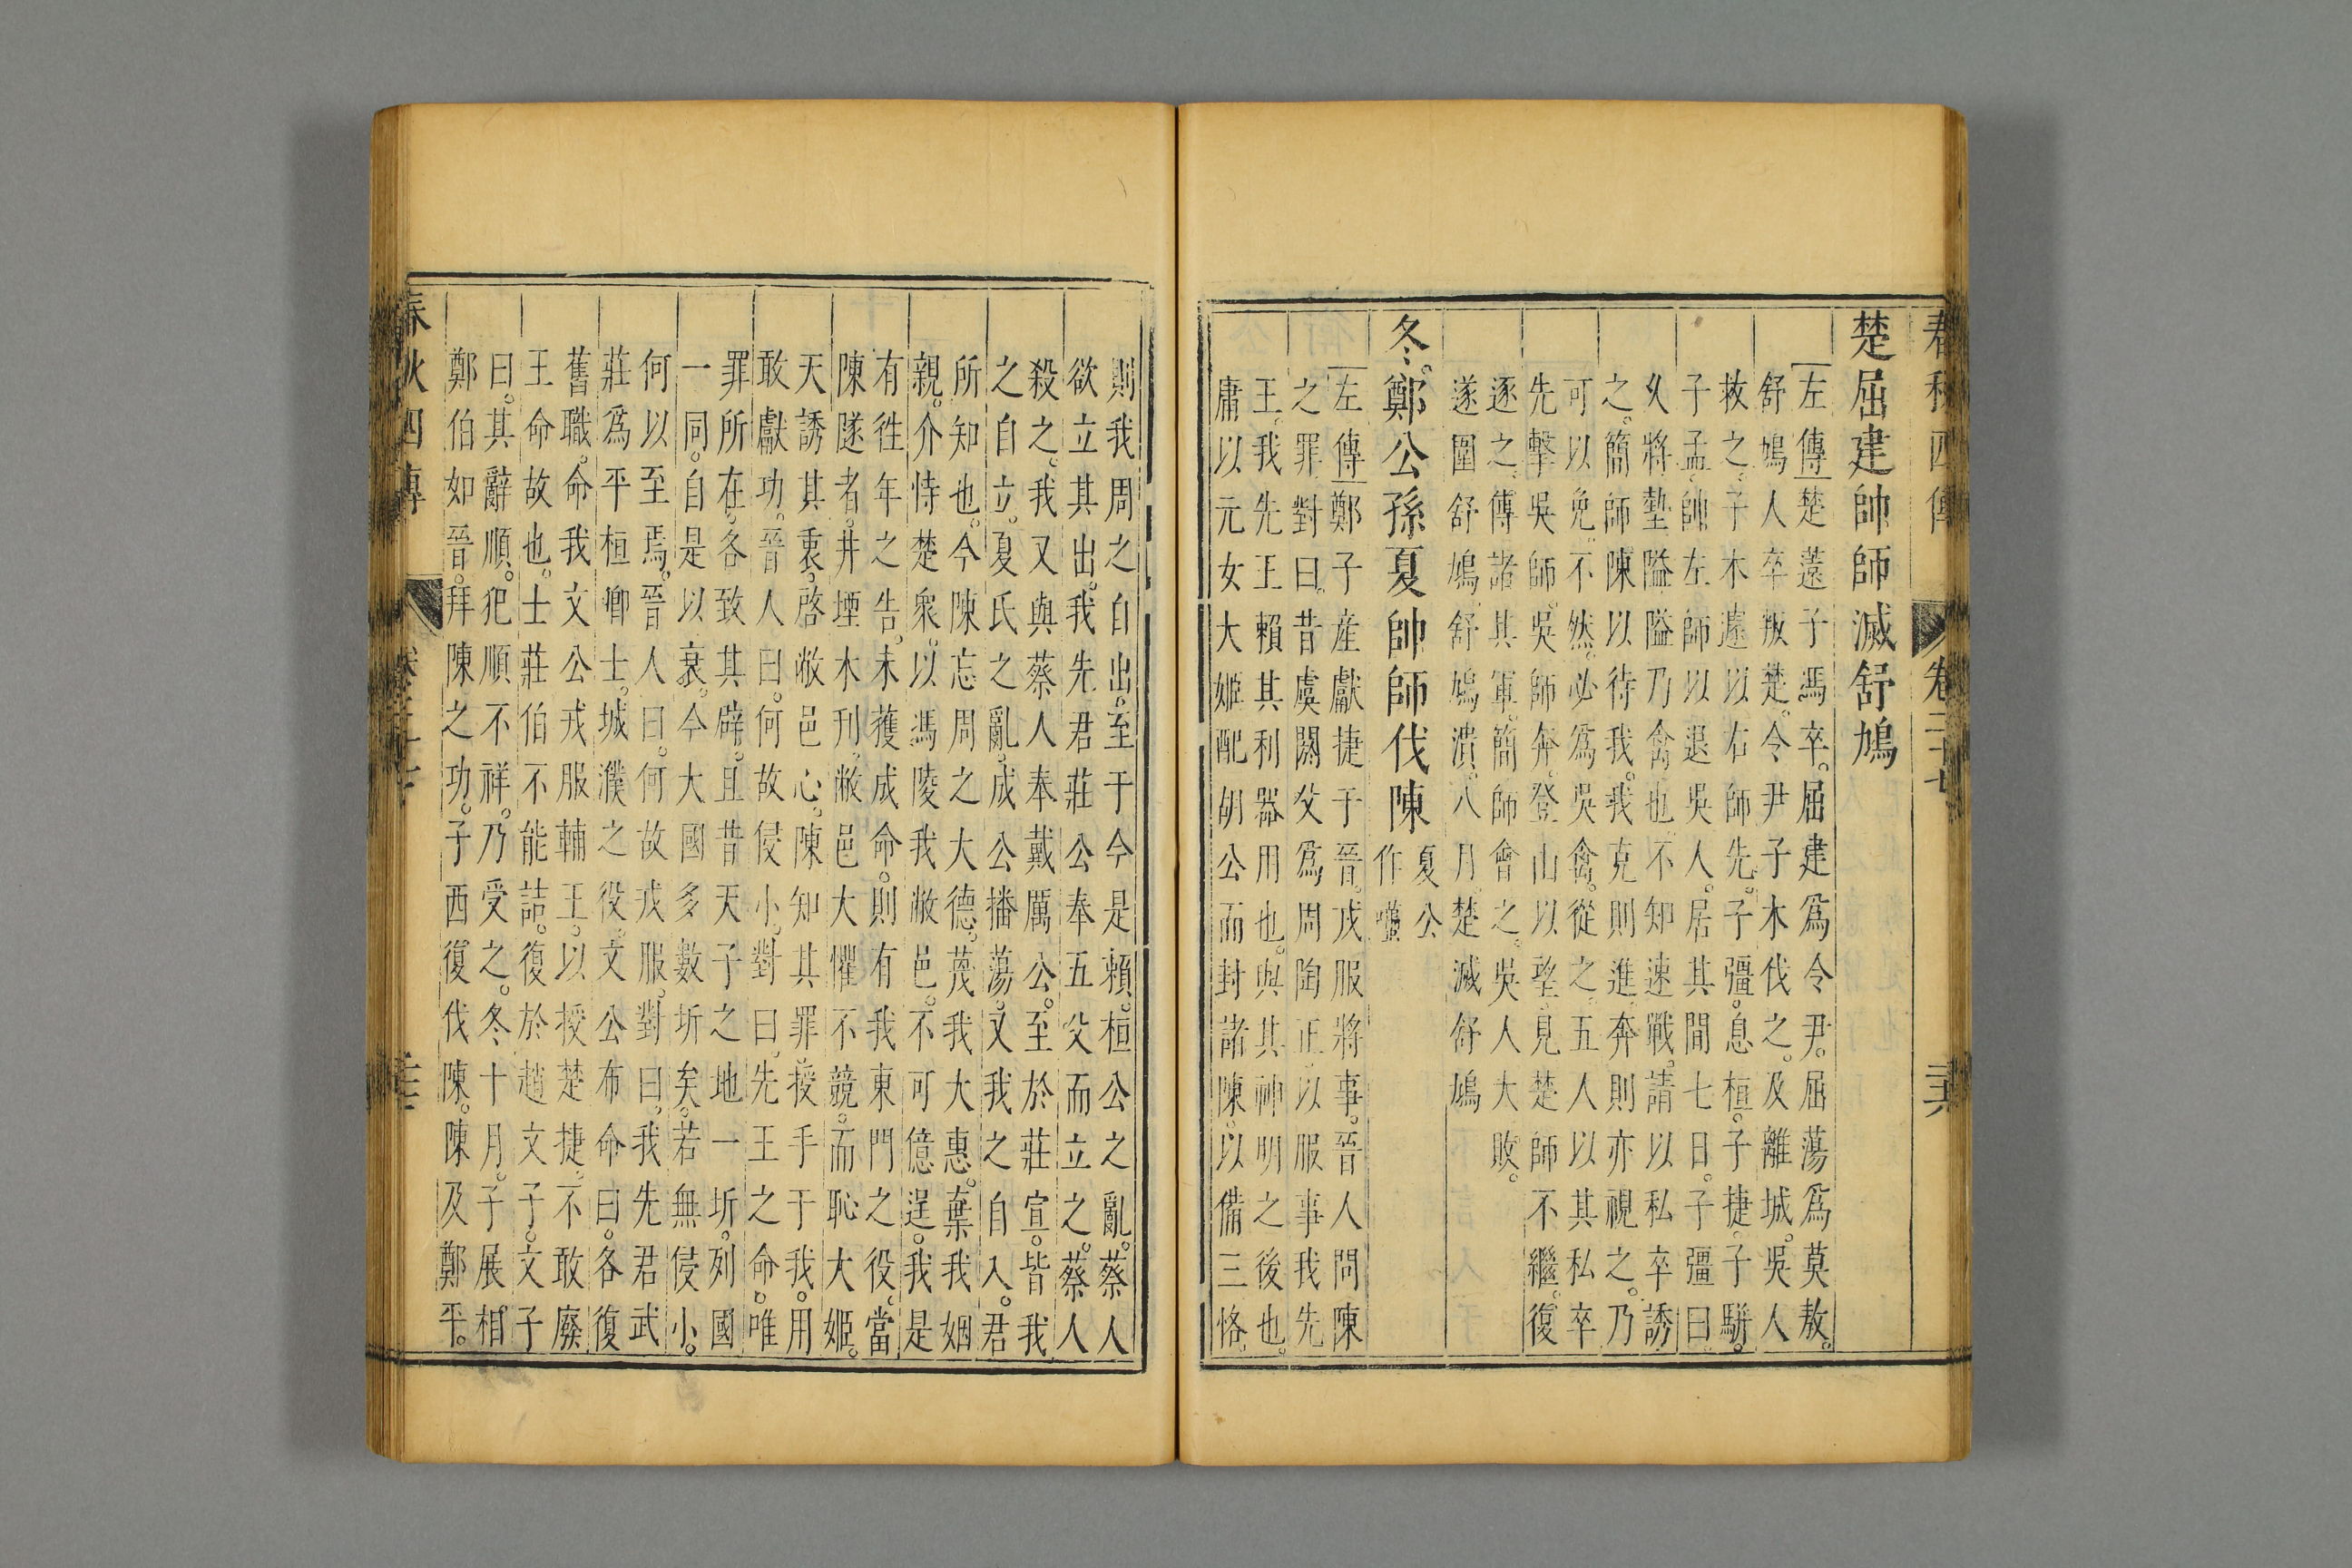 春秋四傳 卷二十七
楚屈建帥師滅舒鳩
左傳楚薳子馮卒。屈建爲令尹。屈蕩爲莫敖。
舒鳩人卒叛楚。令尹子木伐之。及離城。吳人
救之。子木遽以右師先。子彊。息桓。子捷。子駢。
子孟。帥左師以退。吳人。居其間七日。子彊曰
久將墊隘。隘乃禽也。不知速戰。請以私卒誘
之。簡師陳以待我。我克則進。奔則亦視之。乃
可以免。不然。必爲吳禽。從之。五人以其私卒
先擊吳師。吳師奔。登山以望。見楚師不繼。復
逐之。傅諸其軍。簡師會之。吳人大敗。
遂圍舒鳩。舒鳩潰。八月。楚滅舒鳩
冬。鄭公孫夏帥師伐陳
夏公
作囆
左傳鄭子産獻捷于晉。戎服將事。晉人問陳
之罪對曰。昔虞閼父爲周陶正。以服事我先
王。我先王賴其利器用也。與其神明之後也。
庸以元女大姬配胡公而封諸陳。以備三恪。
則我周之自出。至于今是賴。桓公之亂。蔡人
欲立其出。我先君莊公奉五父而立之。蔡人
殺之。我又與蔡人奉戴厲公。至於莊宣。皆我
之自立。夏氏之亂。成公播蕩。又我之自入。君
所知也。今陳忘周之大德。蔑我大惠。棄我姻
親。介恃楚衆。以馮陵我敝邑。不可億逞。我是
有徃年之告。未獲成命。則有我東門之役。當
陳隧者。井堙木刊。敝邑大懼不競。而恥大姬。
天誘其衷。啓敝邑心。陳知其罪。授手于我。用
敢獻功。晉人曰。何故侵小。對曰。先王之命。唯
罪所在。各致其辟。且昔天子之地一圻。列國
一同。自是以衰。今大國多數圻矣。若無侵小。
何以至焉。晉人曰。何故戎服。對曰。我先君武
莊爲平桓卿士。城濮之役。文公布命曰。各復
舊職。命我文公戎服輔王。以授楚捷。不敢廢
王命故也。士莊伯不能詰。復於趙文子。文子
曰。其辭順。犯順不祥。乃受之。冬十月。子展相
鄭伯如晉。拜陳之功。子西復伐陳。陳及鄭平。
春秋四傳